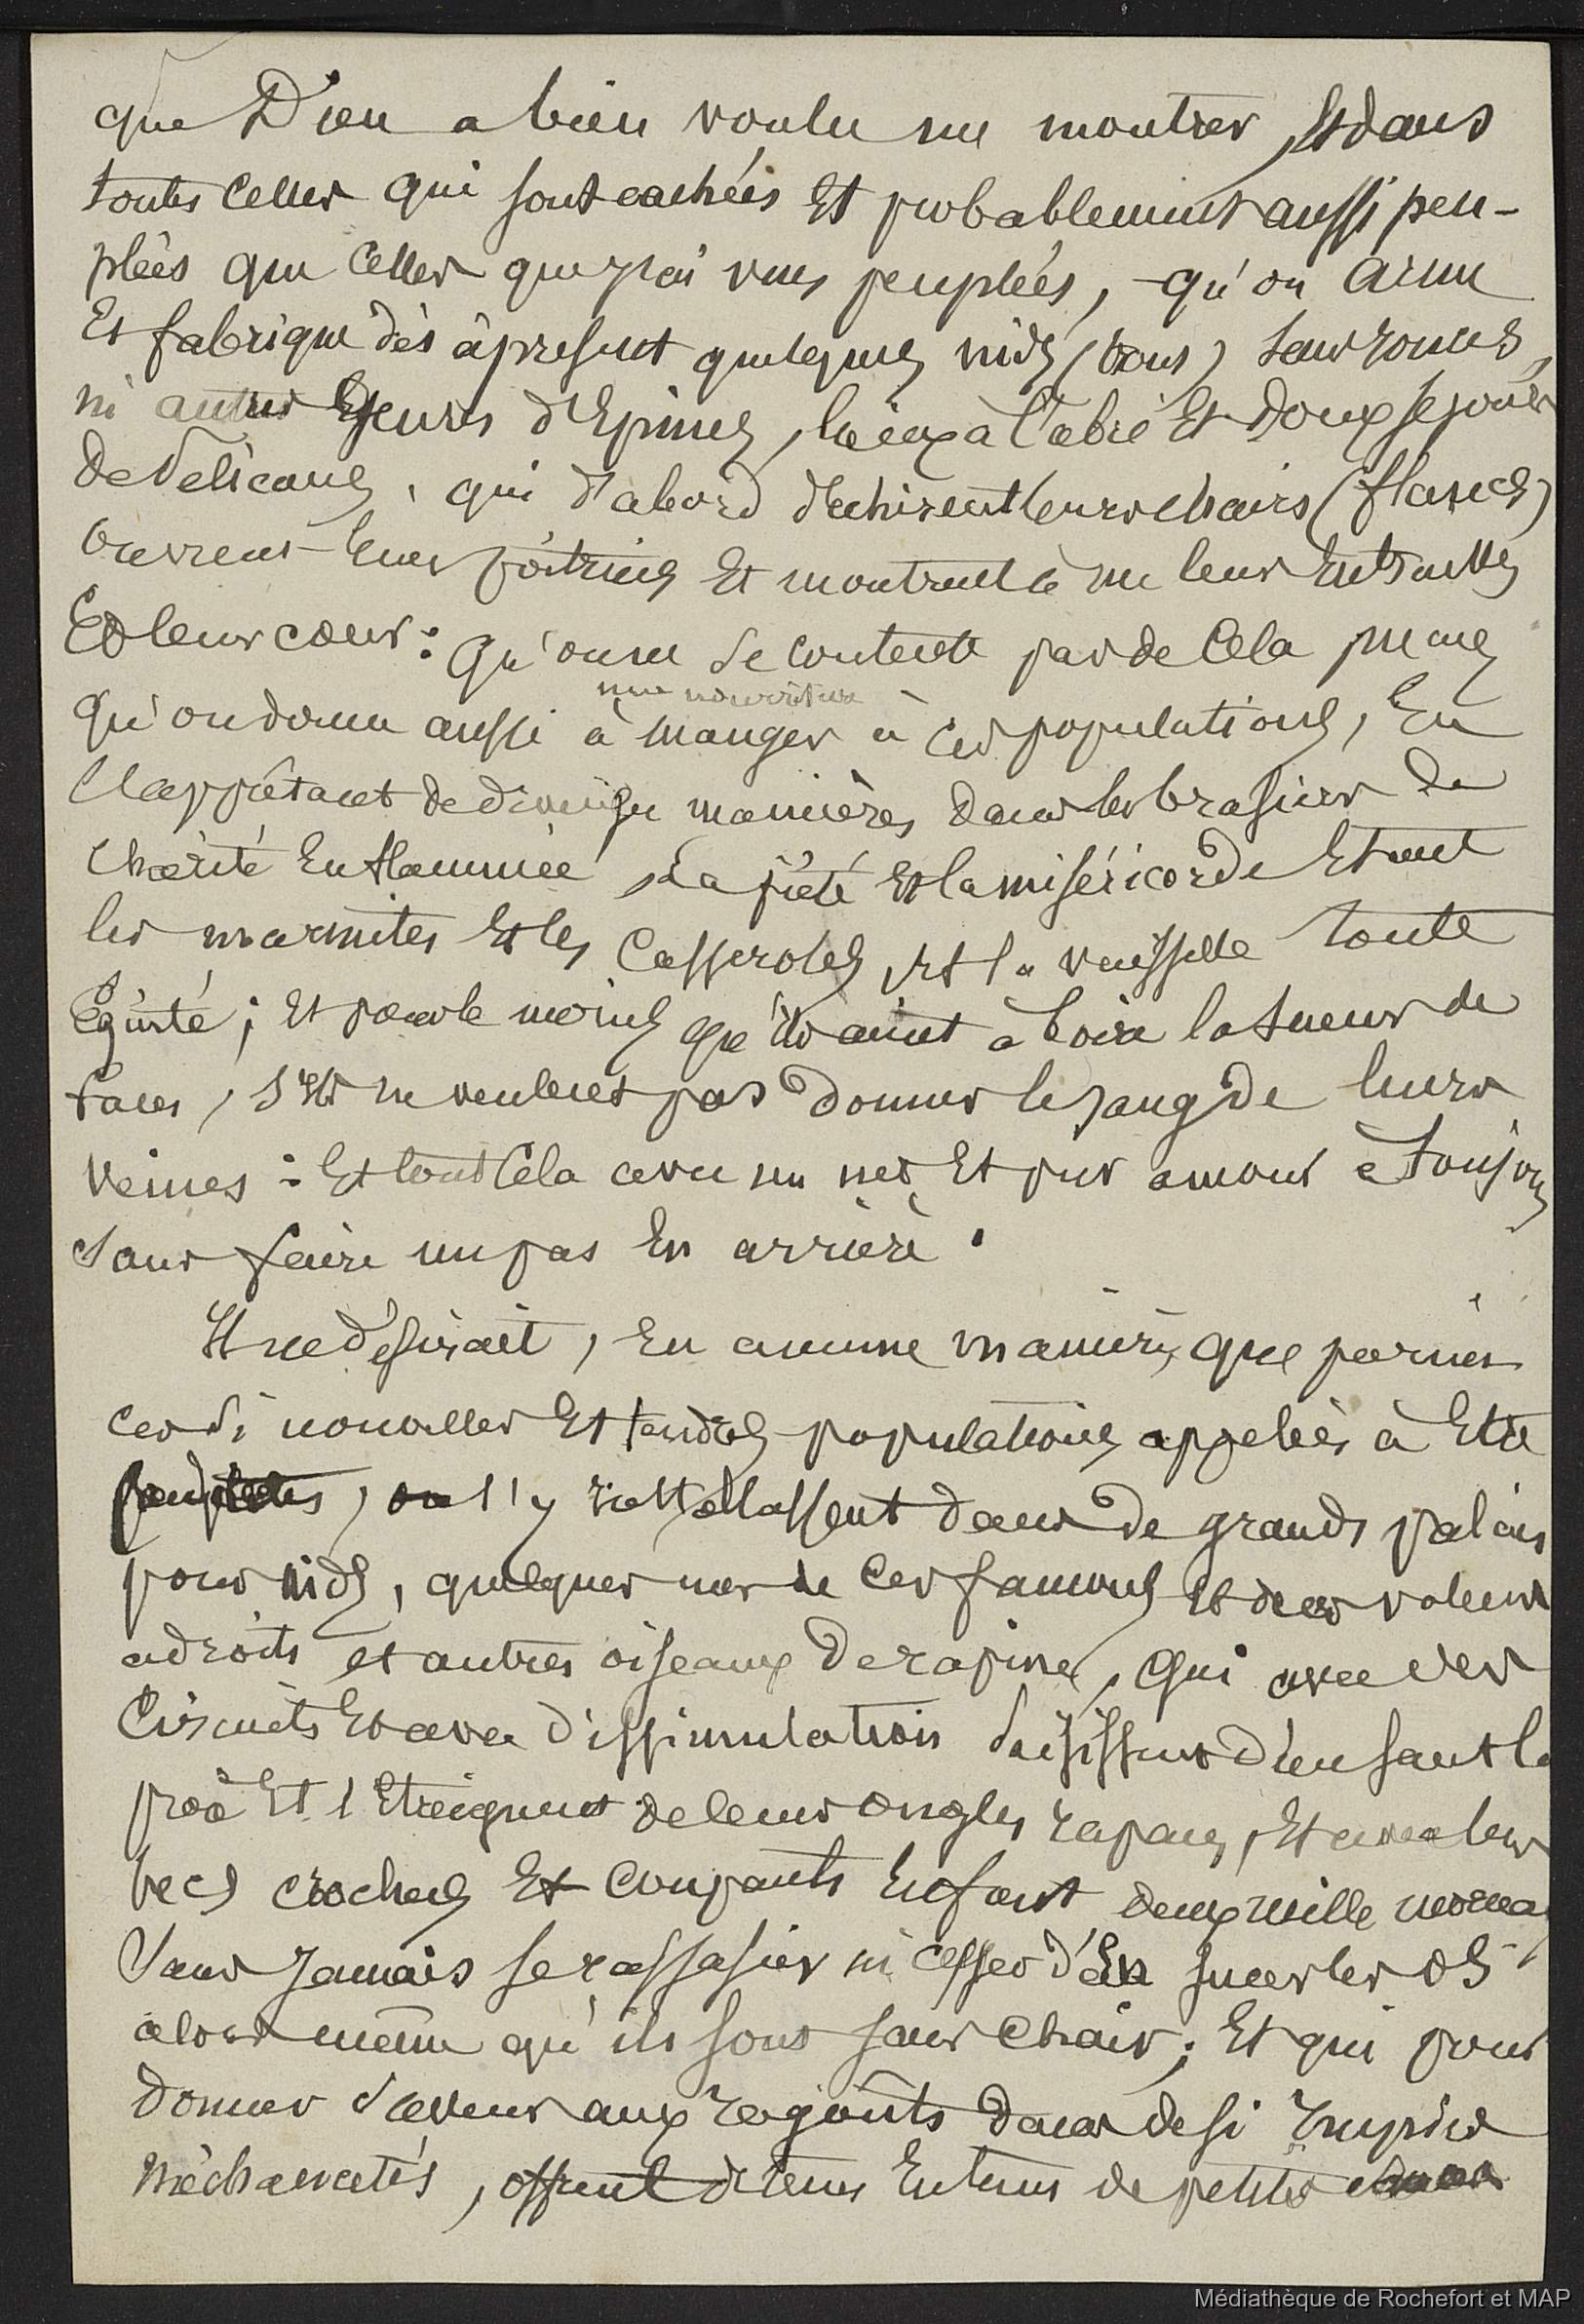 que Dieu a bien voulu me montrer, Et dans
toutes celles qui sont cachées Et probablement aussi peu-
plées que celles que j'ai vues peuplées, qu'on aime
Et fabrique dès àprésent quelques nids (tous) sans ronces,
ni autres genres d'Epines, lieux à l'abri Et doux séjour
de Pelicans, qui d'abord déchirent leurs chairs (flancs)
ouvrent leurs poitrines Et montrent à nu leurs Entrailles
Et leur cœur: Qu'on ne se contente pas de cela
une nourriture
Qu'on donne aussi à manger à ces populations, En
l'apprêtant de diverses manières dans les brasiers de
Charité Enflammée, la piété Et la miséricorde Etant
les marmites Et les Casseroles, Et la vaisselle toute
Equité; Et pour le moins qu'ils aient à boire la sueur de
faces, s'ils ne veulent pas donner le sang de leurs
veines: Et tout Cela avec un net Et pur amour à toujours
sans faire un pas En arrière.
Il ne désirait, En aucune manière, que parmi
ces si nouvelles Et tendres populations appelées à Etre
peuplées, s'y installassent dans de grands palais
pour nids, quelques uns de ces fameux Et voleurs
adroits et autres oiseaux de rapine, Qui avec des
Circuits Et avec dissimulation saisissent d'un saut la
proie Et l'Etreignent de leurs ongles rapaces, Et avec leurs
becs crochus Et coupants En font deux mille morceaux
Sans Jamais se rassasier ni cesser d'En sucer les os
alors même qu'ils sont sans chair; Et qui pour
donner saveur aux ragoûts dans de si Impies
méchancetés, offrent de petites
Médiathèque de Rochefort et MAP